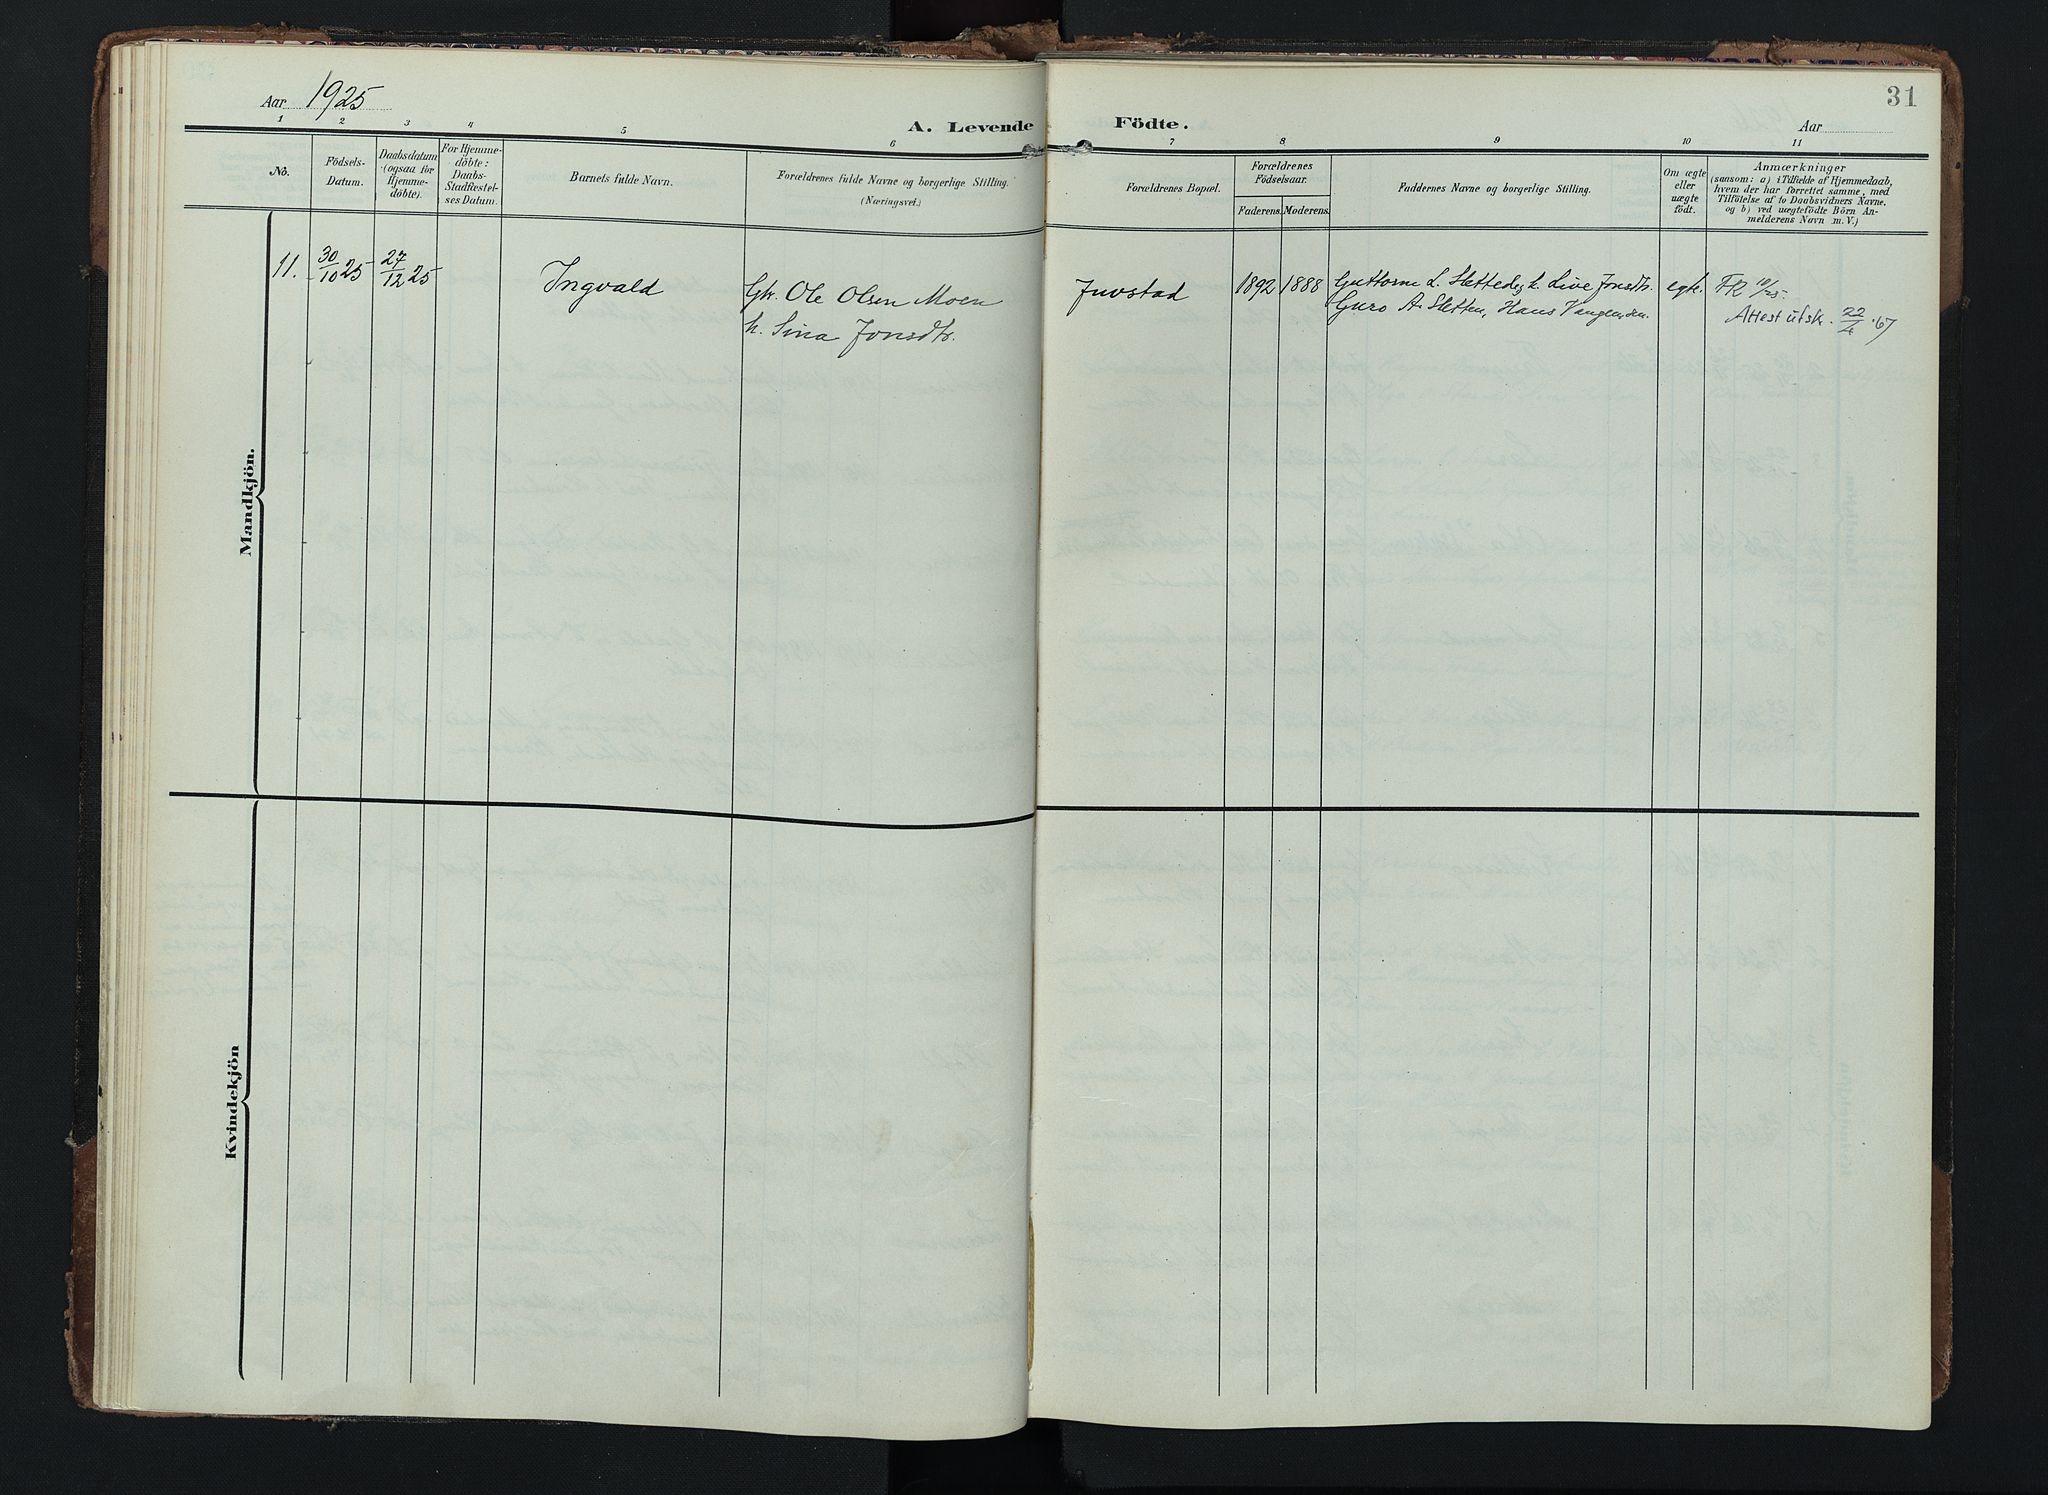 Aar 1925
A. Levende Födte.
Aar
31
1 2 3 4 5 6 7 8 9 10 11
No.
Födsels-
Datum.
Daabsdatum
(ogsaa for
Hjemme-
döbte).
For Hjemme-
döbte:
Daabs-
Stadfæstel-
ses Datum.
Barnets fulde Navn.
Forældrenes fulde Navne og borgerlige Stilling.
(Næringsvei.)
Forældrenes Bopæl.
Forældrenes
Födselsaar.
Faderens. Moderens.
Faddernes Navne og borgerlige Stilling.
Om ægte
eller
uægte
födt.
Anmærkninger
(saasom: a) i Tilfælde af Hjemmedaab,
hvem der har forrettet samme, med
Tilföielse af to Daabsvidners Navne,
og b) ved uægtefödte Börn An-
melderens Navn m. V.)
Mandkjön.
11. 30/10 25 27/12 25 Ingvald Gbr. Ole Olsen Moen
h. Sina Jonsdtr.
Juvstad 1892 1888 Guttorm L. Slettede, h. Live Jonsdtr.
Guro A. Sletten, Hans
egte. FR 10/25.
Attest utsk. 22/4 '67
Kvindekjön